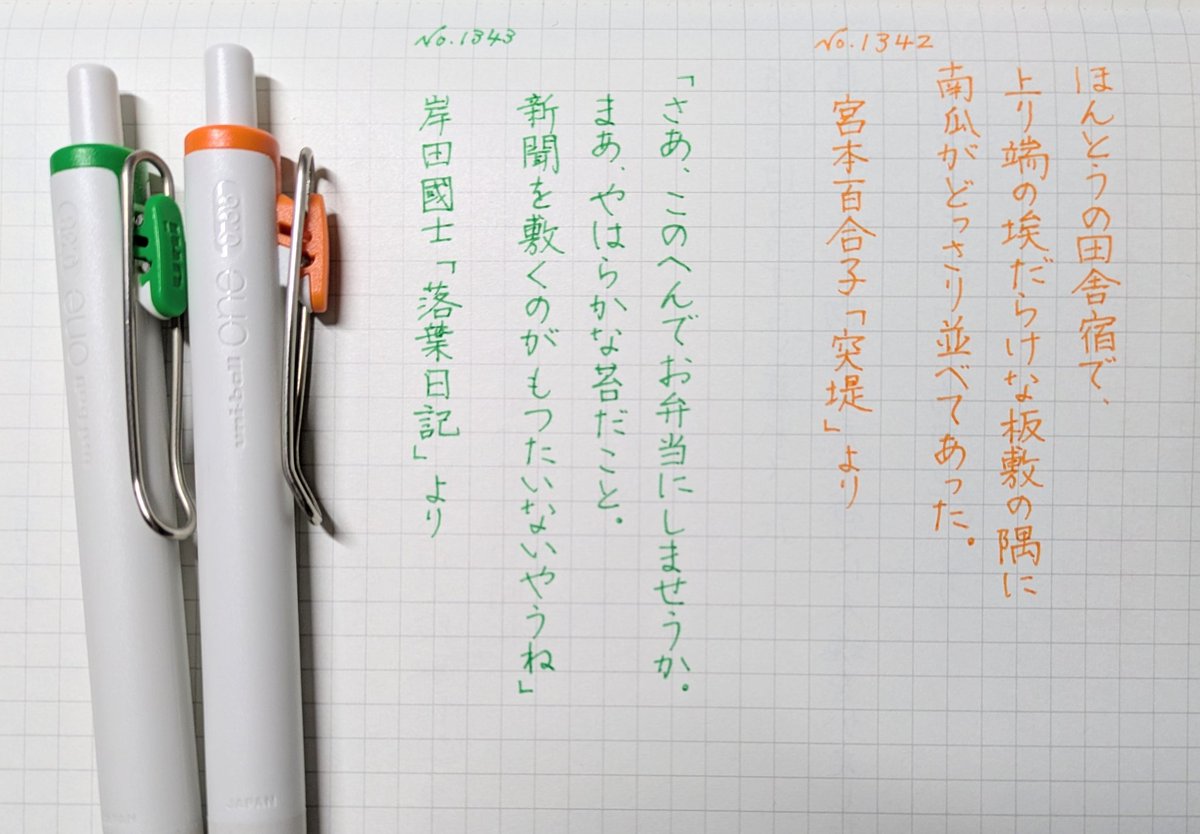 No.1342
ほんとうの田舎宿で、
上り端の埃だらけな板敷の隅に
南瓜がどっさり並べてあった。
宮本百合子「突堤」より
No.1343
「さあ、このへんでお弁当にしませうか。
まあ、やはらかな苔だこと。
新聞を敷くのがもつたいないやうね」
岸田國士「落葉日記」より
uni-ball one 0.38
JAPAN
uni-ball one
JAPAN